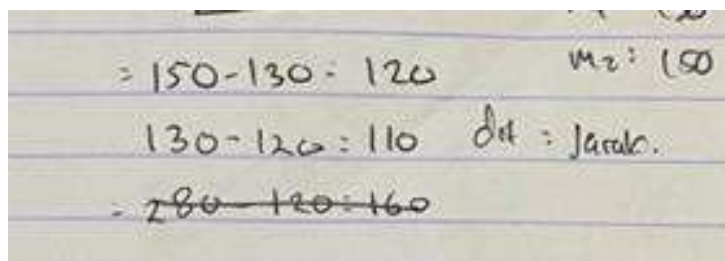 = 150-130 = 120
m2 : 150
130-120 = 110 dit : Jarak.
= 280-120=160